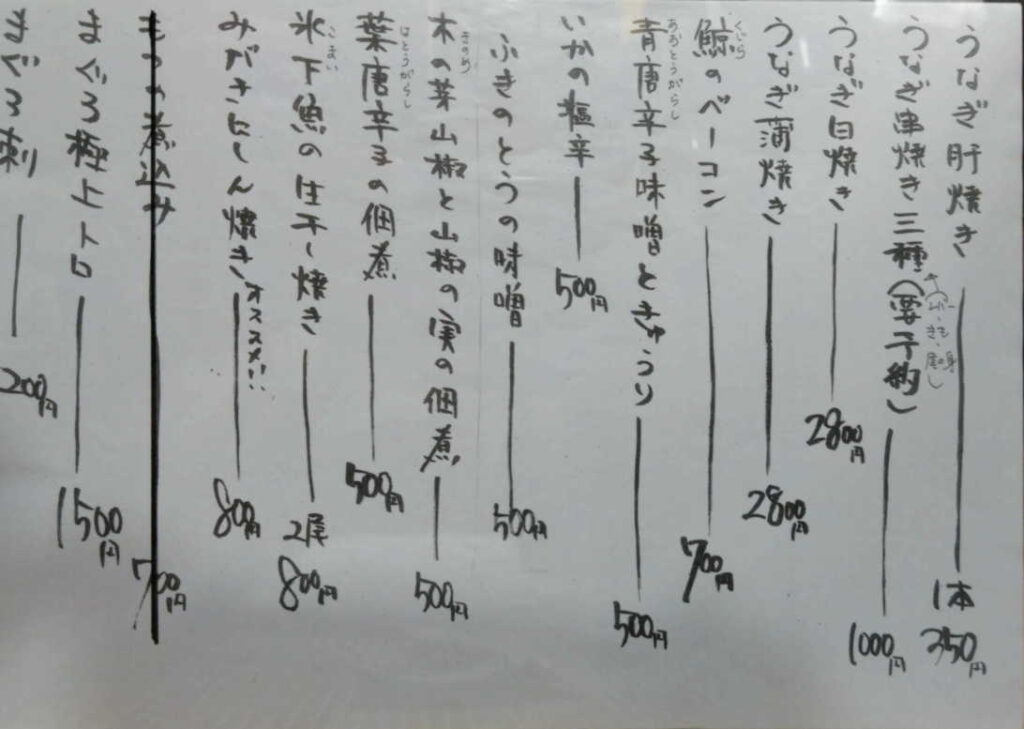 うなぎ肝焼き 1本 350円
うなぎ串焼き三種(要予約) 1000円
うなぎ白焼き 2800円
うなぎ蒲焼き 2800円
鯨のベーコン 700円
くじら
青唐辛子味噌ときゅうり 500円
あおとうがらし
いかの塩辛 500円
ふきのとうの味噌 500円
木の芽山椒と山椒の実の佃煮 500円
きのめ
葉唐辛子の佃煮 500円
はとうがらし
氷下魚の生干し焼き 2尾 800円
こまい
みがきにしん焼き オススメ!! 800円
もつの煮込み 700円
まぐろ極上トロ 1500円
まぐろ刺 200円